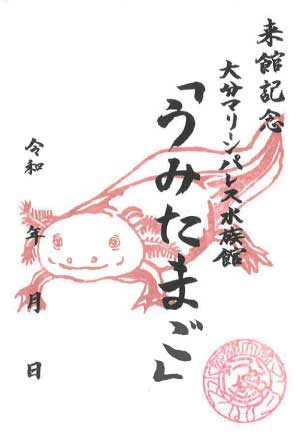 来館記念
大分マリーンパレス水族館
「うみたまご」
令和 年 月 日